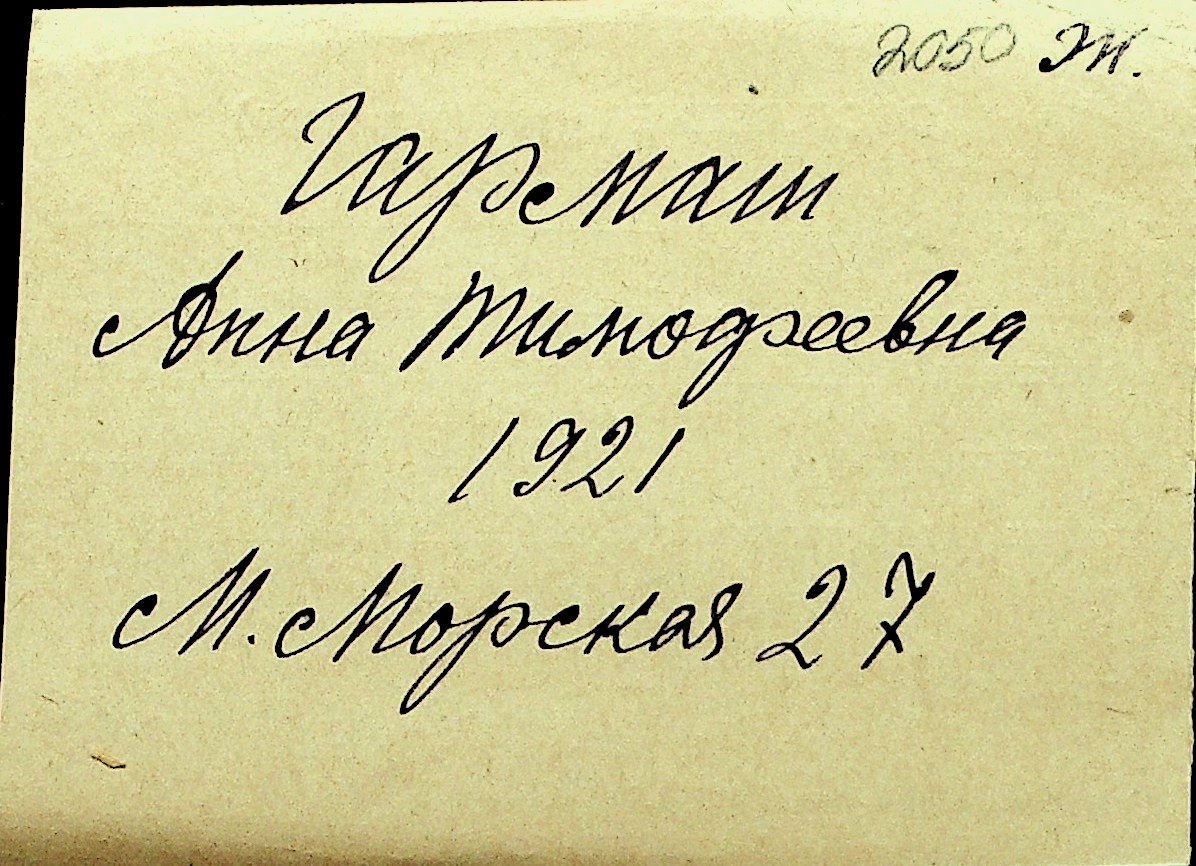 2050 эк.
Гармаш
Анна Тимофеевна
1921
М. Морская 27